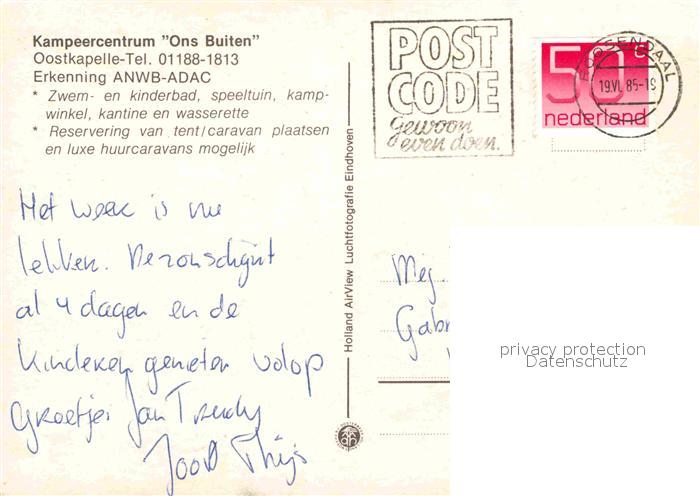 Kampeercentrum "Ons Buiten"
Oostkapelle-Tel. 01188-1813
Erkenning ANWB-ADAC
* Zwem- en kinderbad, speeltuin, kamp-
winkel, kantine en wasserette
* Reservering van tent/caravan plaatsen
en luxe huurcaravans mogelijk
POST
CODE
gewoon
even doen.
50 c
nederland
ROOSENDAAL
19.VI.85-19
Het weer is nu
lekker. De zon schijnt
al 4 dagen en de
kinderen genieten volop
Groetjes Jan Trudy
Joost Thijs
Holland AirView Luchtfotografie Eindhoven
Mej.
Gabr
privacy protection
Datenschutz